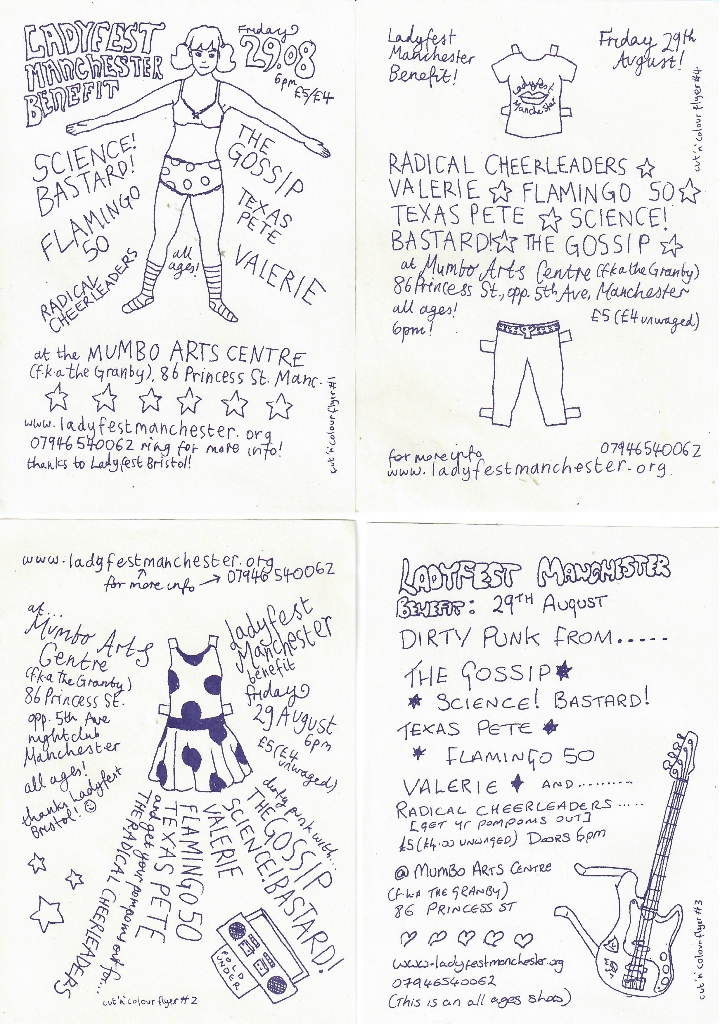 LADYFEST
MANCHESTER
BENEFIT
Friday
29.08
6pm
£5/£4
SCIENCE!
BASTARD!
FLAMINGO
50
RADICAL
CHEERLEADERS
THE
GOSSIP
TEXAS
PETE
VALERIE
all
ages!
at the MUMBO ARTS CENTRE
(f.k.a the Granby), 86 Princess St. Manc.
www.ladyfestmanchester.org
07946540062 ring for more info!
thanks to Ladyfest Bristol!
cut'n'colour flyer #1
Ladyfest
Manchester
Benefit!
Friday 29th
August!
Ladyfest
Manchester
cut'n'colour flyer #4
RADICAL CHEERLEADERS ☆
VALERIE ☆ FLAMINGO 50☆
TEXAS PETE ☆ SCIENCE!
BASTARD!☆ THE GOSSIP ☆
at Mumbo Arts Centre (f.k.a the Granby)
86 Princess St., opp. 5th Ave, Manchester
all ages!
£5 (£4 unwaged)
6pm!
for more info
07946540062
www.ladyfestmanchester.org
www.ladyfestmanchester.org
for more info → 07946540062
at...
Mumbo Arts
Centre
(f.k.a the Granby)
86 Princess St.
opp. 5th Ave
nightclub
Manchester
all ages!
thanks Ladyfest
Bristol! ☺
ladyfest
Manchester
benefit
friday
29 August
6pm
£5(£4
unwaged)
dirty punk with...
THE GOSSIP
SCIENCE!BASTARD!
VALERIE
FLAMINGO 50
TEXAS PETE
and get your pompoms out for...
THE RADICAL CHEERLEADERS
FOLD
UNDER
cut'n'colour flyer #2
LADYFEST MANCHESTER
BENEFIT: 29TH AUGUST
DIRTY PUNK FROM.....
THE GOSSIP★
★ SCIENCE! BASTARD!
TEXAS PETE ★
★ FLAMINGO 50
VALERIE ♦ AND.........
RADICAL CHEERLEADERS.....
[GET YR POMPOMS OUT]
£5(£4.00 UNWAGED) DOORS 6pm
@ MUMBO ARTS CENTRE
(F.K.A THE GRANBY)
86 PRINCESS ST
♡ ♡ ♡ ♡ ♡
www.ladyfestmanchester.org
07946540062
(This is an all ages show)
cut'n'colour flyer #3